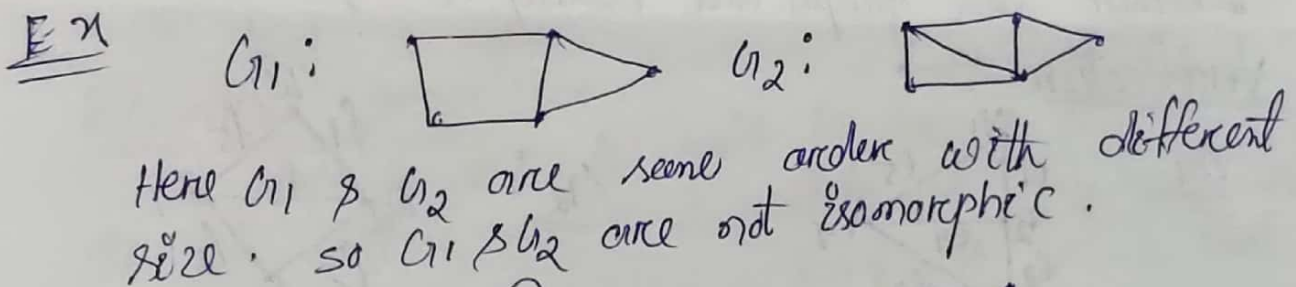 Ex G1: G2:
Here G1 & G2 are same order with different
size. so G1 & G2 are not isomorphic.